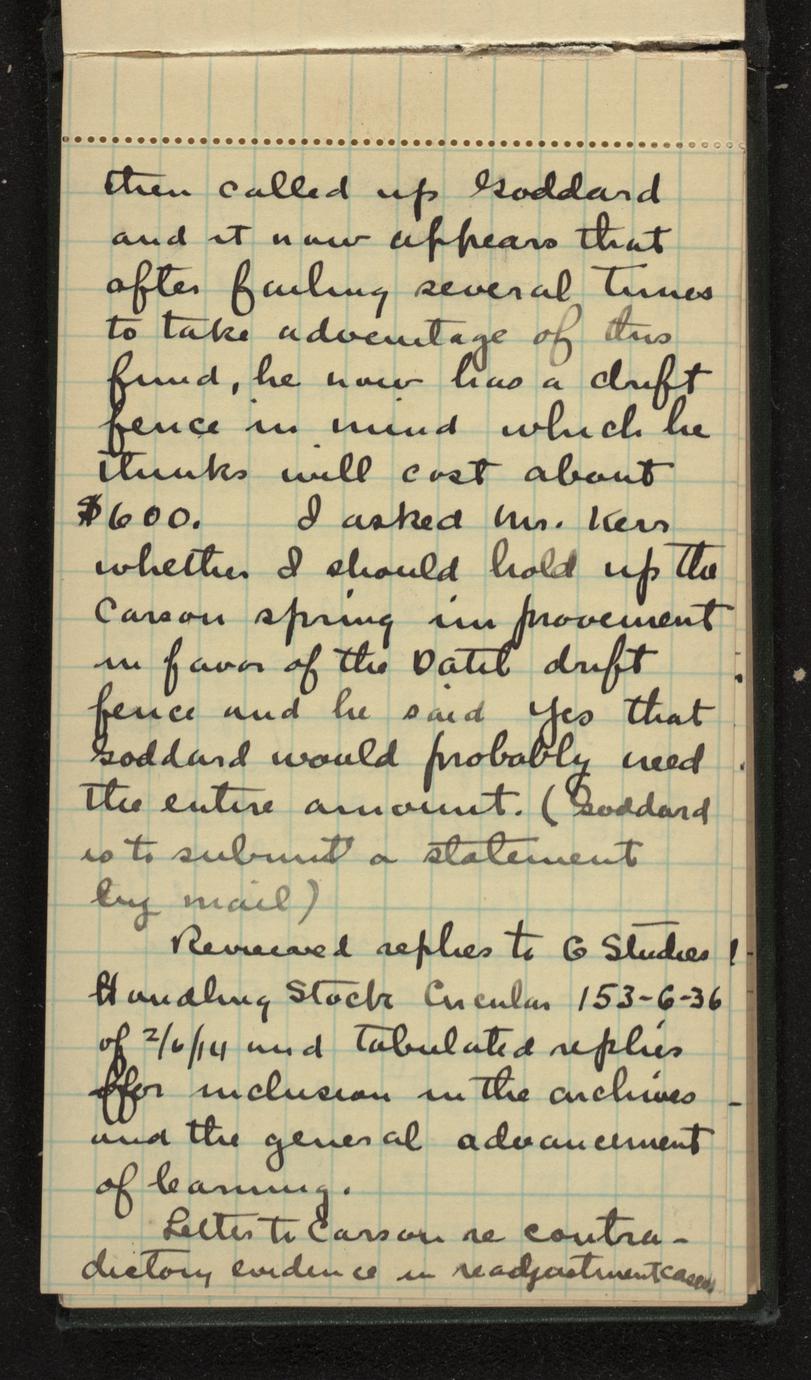 then called up Goddard
and it now appears that
after failing several times
to take advantage of this
fund, he now has a drift
fence in mind which he
thinks will cost about
$600. I asked Mr. Kerr
whether I should hold up the
Carson spring improvement
in favor of the Datil drift
fence and he said Yes that
Goddard would probably need
the entire amount. (Goddard
is to submit a statement
by mail)
Reviewed replies to G Studies
Handling Stock Circular 153-6-36
of 2/6/14 and tabulated replies
for inclusion in the archives
and the general advancement
of learning.
Letter to Carson re contra-
dictory evidence in readjustment cases